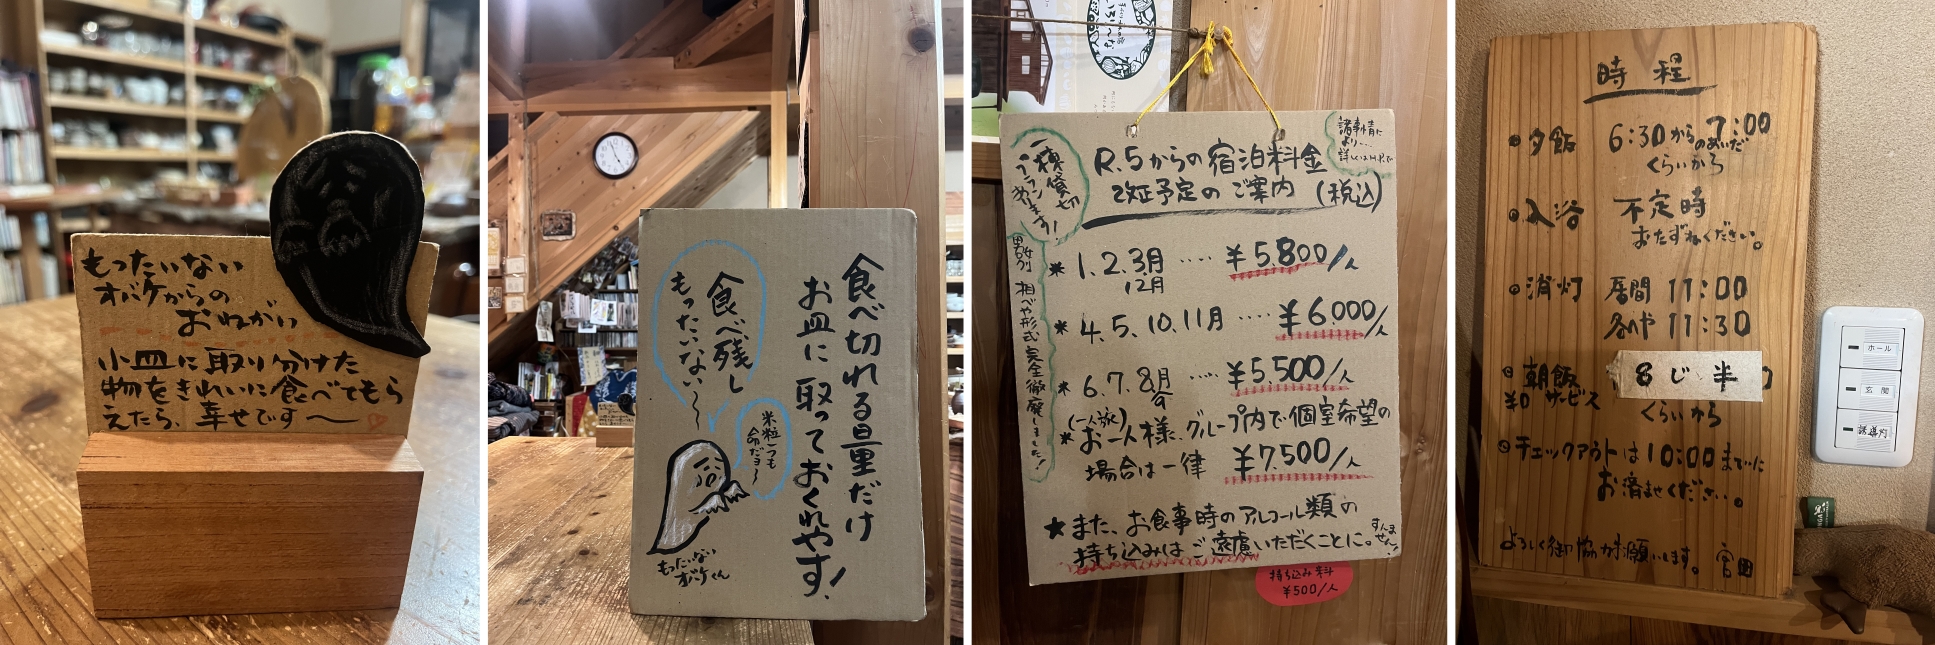 もったいない
オバケからの
おねがい
小皿に取り分けた
物をきれいに食べてもら
えたら、幸せです〜
食べ切れる量だけ
お皿に取っておくれやす!
食べ残し
もったいない〜
米粒一つも
命だヨ〜
もったいない
オバケくん
一棟貸切
プラン
あります!
諸事情に
より…
詳しくはH.P.で
R.5からの宿泊料金
改正予定のご案内(税込)
男女別 相べや形式 完全撤廃しました!
* 1.2.3月 ‥‥ ¥5,800/人
12月
* 4.5.10.11月 ‥‥ ¥6,000/人
* 6.7.8月 ‥‥ ¥5,500/人
9
(一人旅)
* お一人様、グループ内で個室希望の
場合は一律 ¥7,500/人
★また、お食事時のアルコール類の
持ち込みはご遠慮いただくことに。
すんません!
持ち込み料
¥500/人
時程
夕飯 6:30から7:00
のあいだ
くらいから
入浴 不定時
おたずねください。
消灯 居間 11:00
各へや 11:30
朝飯 8じ半
¥0 サービス くらいから
チェックアウトは10:00までに
お済ませください。
よろしく御協力お願いします。 宮田
ホール
玄関
誘導灯